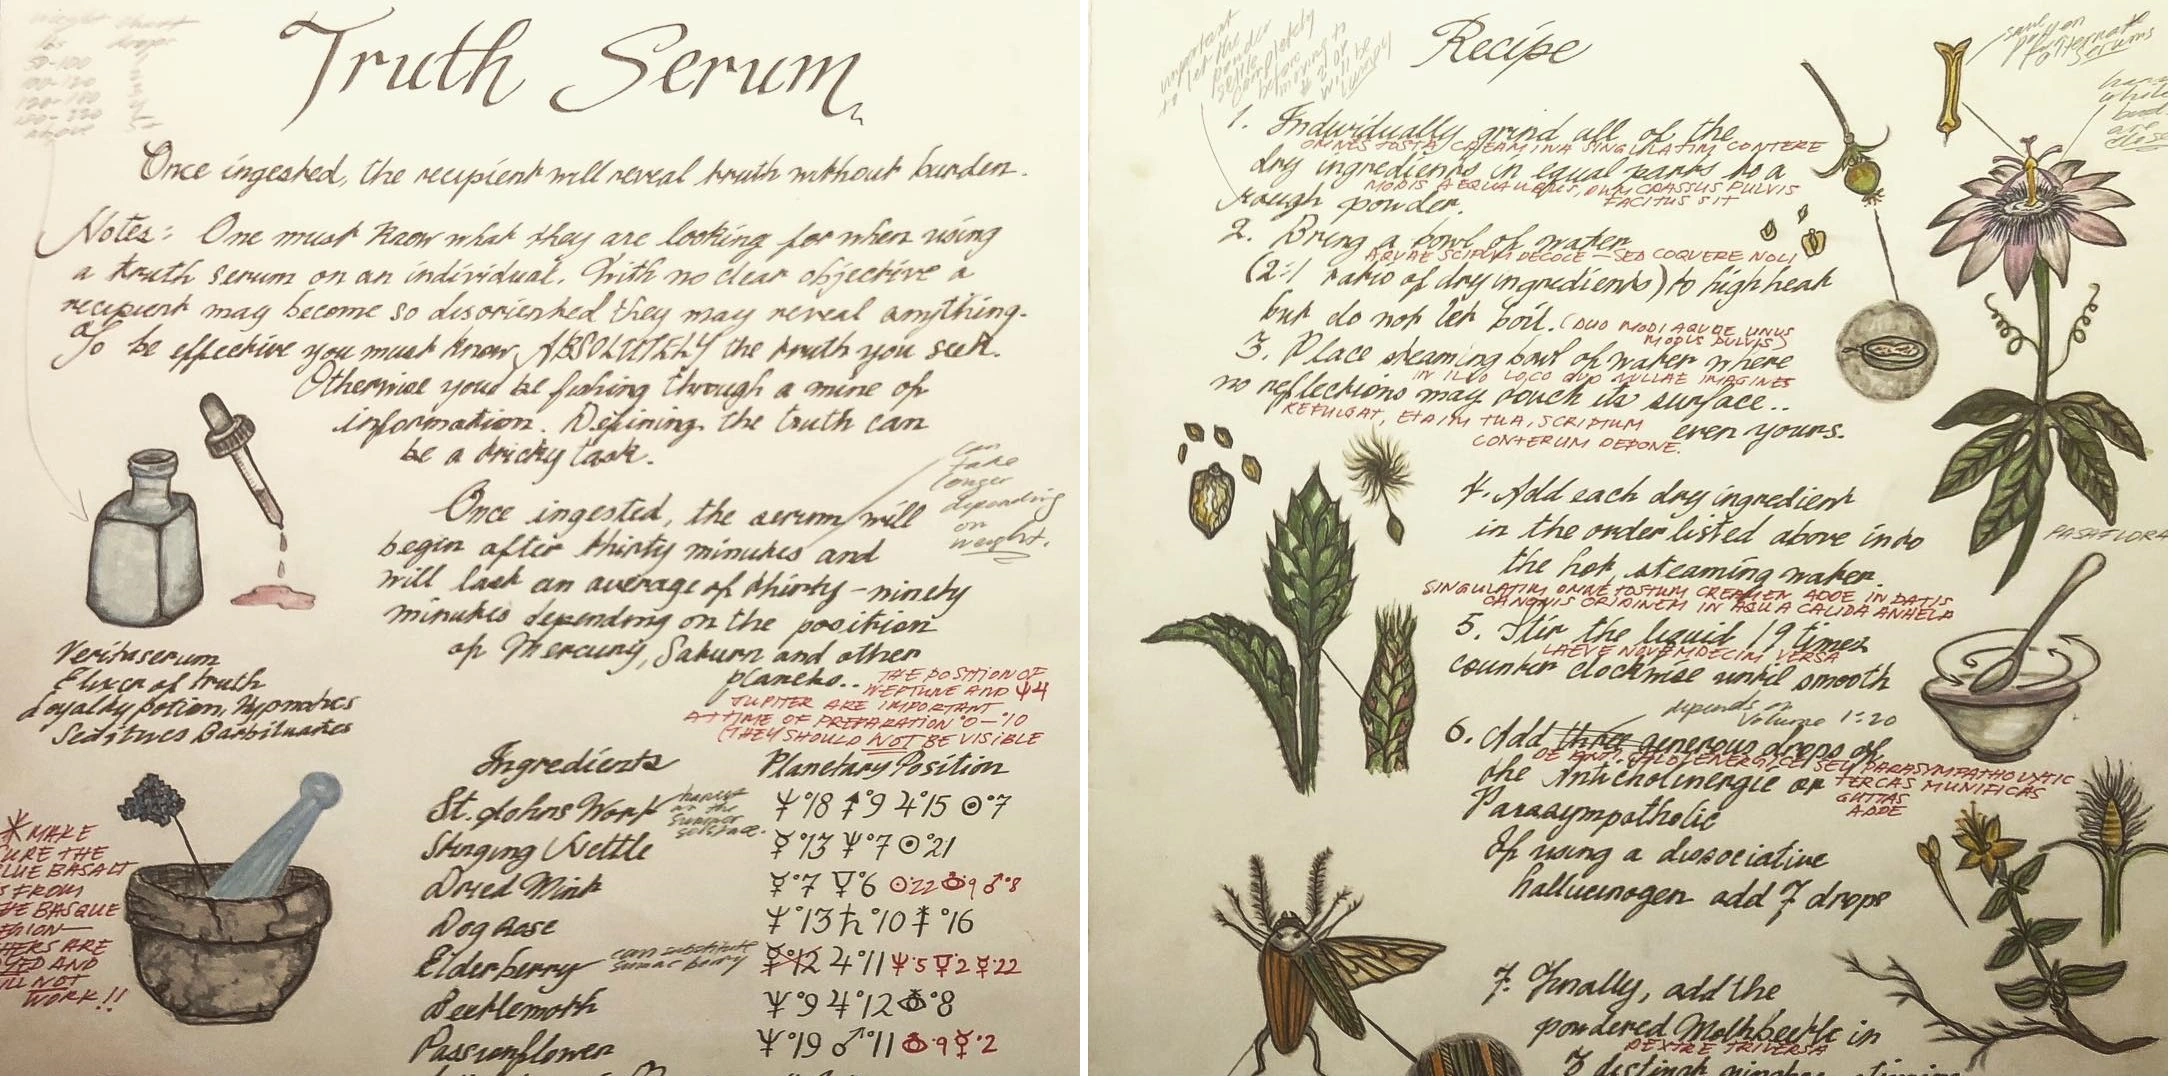 weight chart
lbs drops
50-100
above
Truth Serum
Once ingested, the recipient will reveal truth without burden.
Notes: One must know what they are looking for when using
a truth serum on an individual. With no clear objective a
recipient may become so disoriented they may reveal anything.
To be effective you must know ABSOLUTELY the truth you seek.
Otherwise you'd be fishing through a mine of
information. Defining the truth can
be a tricky task.
can
take
longer
depending
on
weight.
Once ingested, the serum will
begin after thirty minutes and
will last an average of thirty-ninety
minutes depending on the position
of Mercury, Saturn and other
planets..
THE POSITION OF
NEPTUNE AND ♆♃
JUPITER ARE IMPORTANT
AT TIME OF PREPARATION °0-°10
(THEY SHOULD NOT BE VISIBLE
Veritaserum
Elixer of truth
Loyalty potion, Hypnotics
Seditives Barbituates
* MAKE
URE THE
LUE BASALT
S FROM
HE BASQUE
HERS ARE
YED AND
ILL NOT
WORK!!
Ingredients Planetary Position
St. Johns Wort harvest at the summer solstice. ♆°18 °9 ♃°15 ☉°7
Stinging Nettle ☿°13 ♆°7 ☉°21
Dried Mint ☿°7 °6 ☉°22 °9 ♂°8
Dog Rose °13 ♄°10 °16
Elderberry can substitute sumac berry ☿°12 ♃°11 ♆°5 °2 ☿°22
Beetlemoth °9 ♃°12 °8
Passionflower ♆°19 ♂°11 °9 ☿°2
Recipe
important
to let the
powder
settle
completely
before
moving to
#2 or be
will
lumpy
1. Individually grind all of the
OMNES TOSTA CREAMINA SINGULATIM CONTERE
dry ingredients in equal parts to a
MODIS AEQUALIBUS, DUM CRASSUS PULVIS
rough powder.
FACITUS SIT
2. Bring a bowl of water
AQUAE SCIPUM DECOLE - SED COQUERE NOLI
(2:1 ratio of dry ingredients) to high heat
but do not let boil. (DUO MODI AQUAE UNUS
MODUS PULVIS)
3. Place steaming bowl of water where
IN ILLO LOCO QUO NULLAE IMAGINES
no reflections may touch its surface..
REFULGAT, ETAIM TUA, SCRIPIUM
even yours.
CONTERUM DEPONE.
4. Add each dry ingredient
in the order listed above into
the hot, steaming water.
SINGULATIM OMNE TOSTUM CREAMEN ADDE IN DATIS
ORIDINEM IN AQUA CALIDA ANHELA
5. Stir the liquid 19 times
LAEVE NOVEMDECIM VERSA
counter clockwise until smooth
depends on
Volume 1:20
6. Add three generous drops of
the Anticholinergic or
PARASYMPATHOLYTIC
TERCAS MUNIFICAS
GUTTAS
ADDE
Parasympatholic
If using a dissociative
hallucinogen add 7 drops
7. Finally, add the
powdered Mothbeetle in
DEXTRE TRIVERSA
3 distinct
PASAFLORA